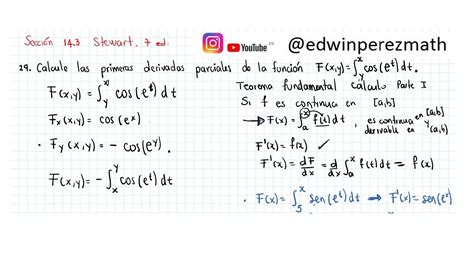 Sección 14.3 Stewart. 7 ed.
YouTube
@edwinperezmath
29. Calcule las primeras derivadas parciales de la función F(x,y)=∫_y^x cos(e^t)dt.
F(x,y)=∫_y^x cos(e^t)dt
F_x(x,y)= cos(e^x)
· F_y(x,y)= -cos(e^y).
F(x,y)= -∫_x^y cos(e^t)dt
Teorema fundamental cálculo Parte I
Si f es continua en [a,b]
F(x)=∫_a^x f(t)dt, es continua en [a,b]
y derivable en (a,b)
F'(x)=f(x) ✓
F'(x)=dF/dx = d/dx ∫_a^x f(t)dt = f(x)
· F(x)=∫_5^x sen(e^t)dt → F'(x)=sen(e^x)